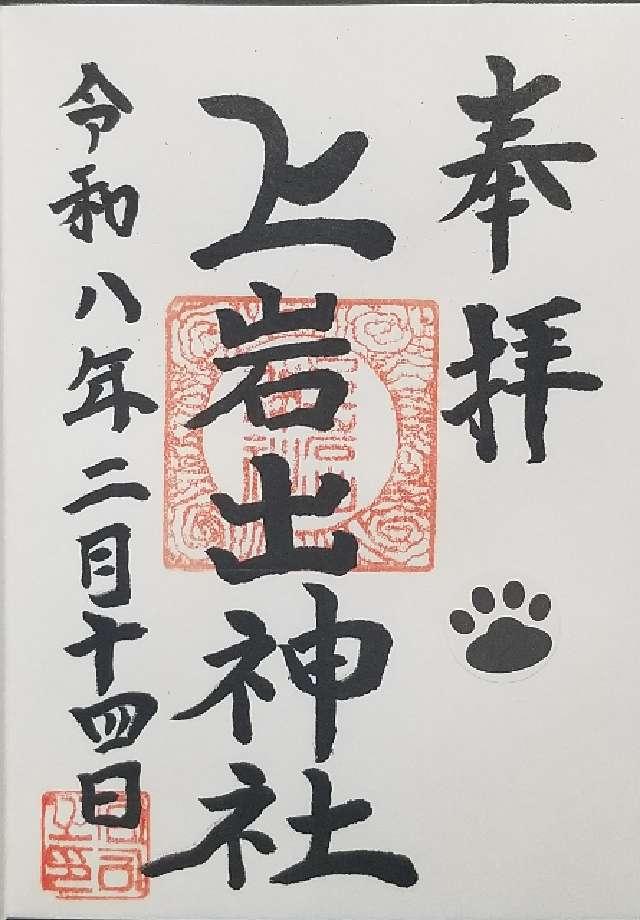 奉拝
上岩出神社
令和八年二月十四日